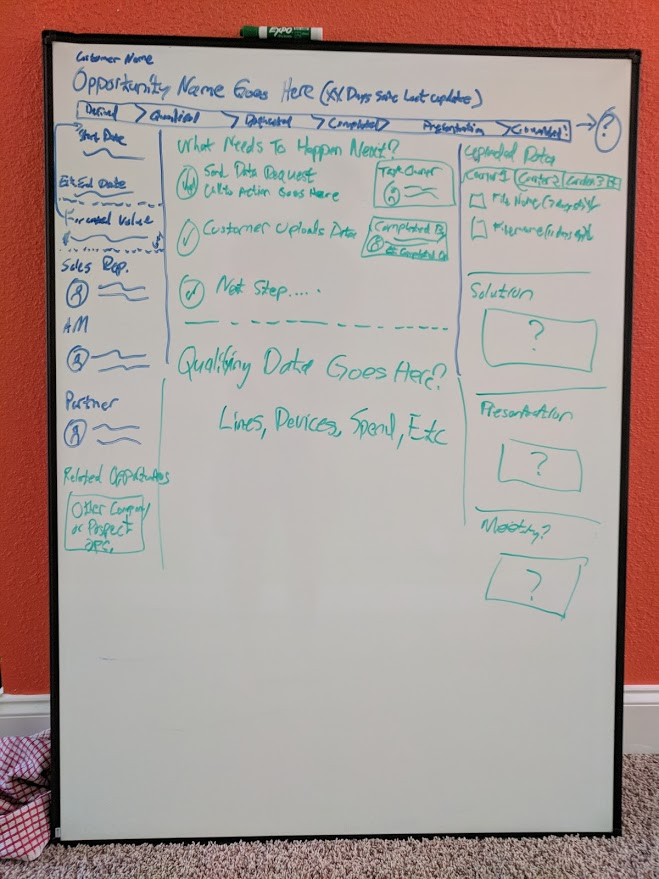 EXPO
Customer Name
Opportunity Name Goes Here (XX Days Since Last Update)
Qualified
Completed
Presentation
?
Start Date
Est End Date
Forecasted Value
Sales Rep.
AM
Partner
Related Opportunities
Other Company
or Prospect
What Needs To Happen Next?
Send Data Request
Call to Action Goes Here
Task Owner
Customer Uploads Data
Completed By
Next Step.....
Qualifying Data Goes Here?
Lines, Devices, Spend, Etc
Uploaded Data
Carrier 1
Carrier 2
Carrier 3
File Name
Filename
Solution
?
Presentation
?
Meeting?
?